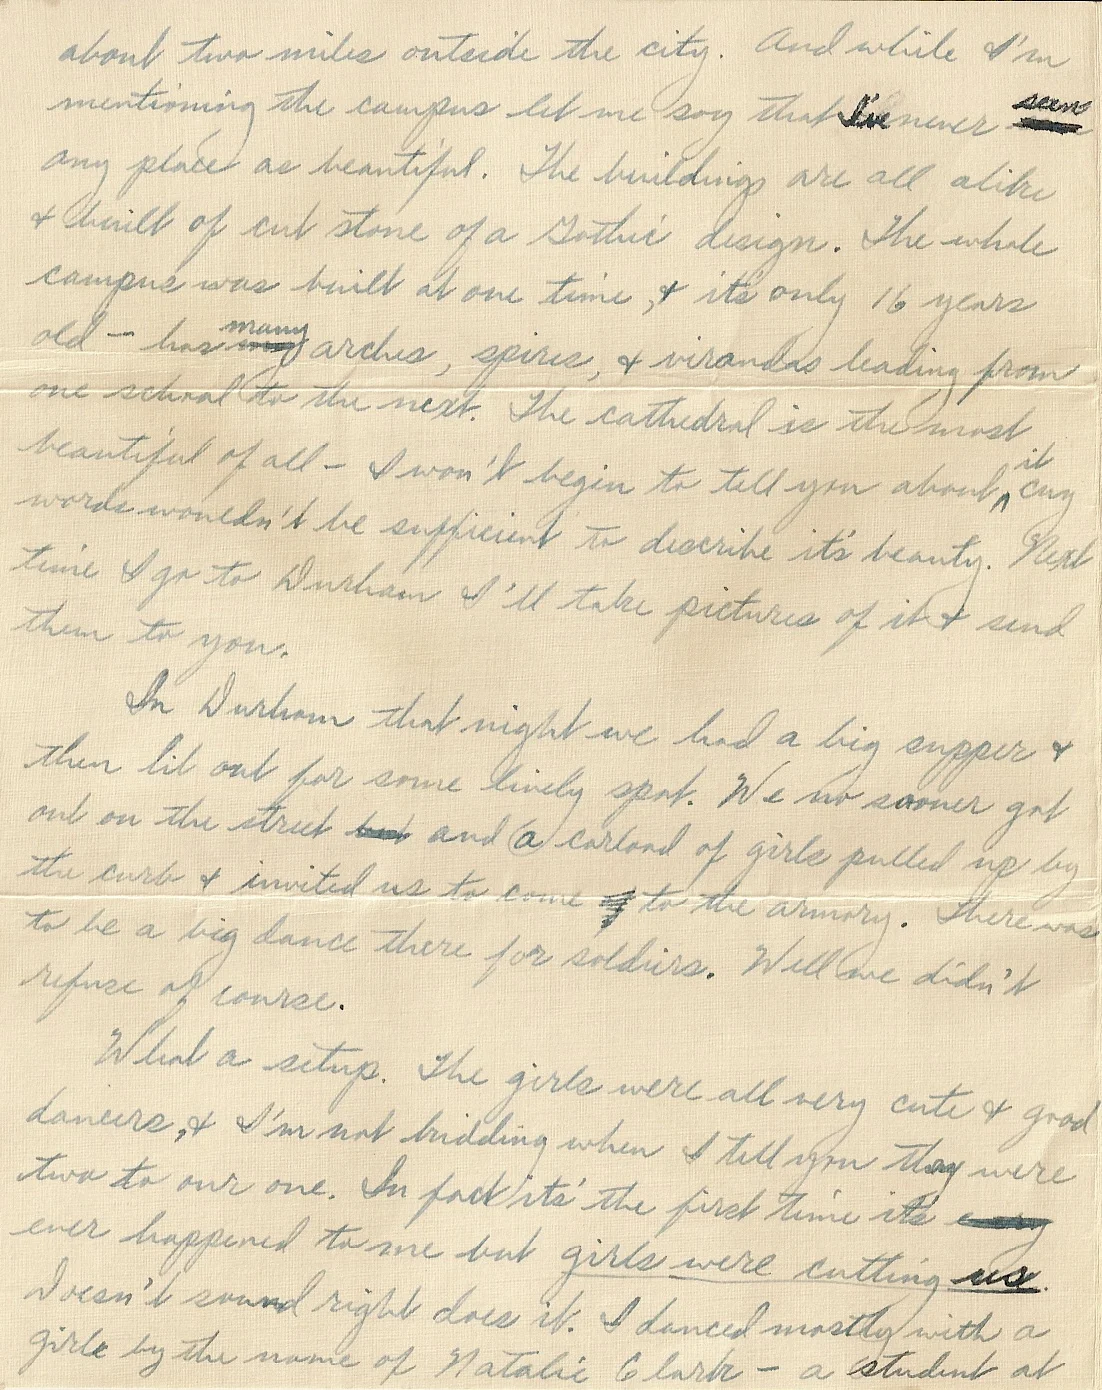 about two miles outside the city. And while I'm
mentioning the campus let me say that I've never seen
any place as beautiful. The buildings are all alike
& built of cut stone of a Gothic design. The whole
campus was built at one time, & it's only 16 years
old - has many arches, spires, & virandas leading from
one school to the next. The cathedral is the most
beautiful of all - I won't begin to tell you about it cuz
words wouldn't be sufficient to describe it's beauty. Next
time I go to Durham I'll take pictures of it & send
them to you.
In Durham that night we had a big supper &
then lit out for some lively spot. We no sooner got
out on the street but and a carload of girls pulled up by
the curb & invited us to come to the armory. There was
to be a big dance there for soldiers. Well we didn't
refuse of course.
What a setup. The girls were all very cute & good
dancers, & I'm not kidding when I tell you they were
two to our one. In fact it's the first time it's
ever happened to me but girls were cutting us.
Doesn't sound right does it. I danced mostly with a
girl by the name of Natalie Clark - a student at